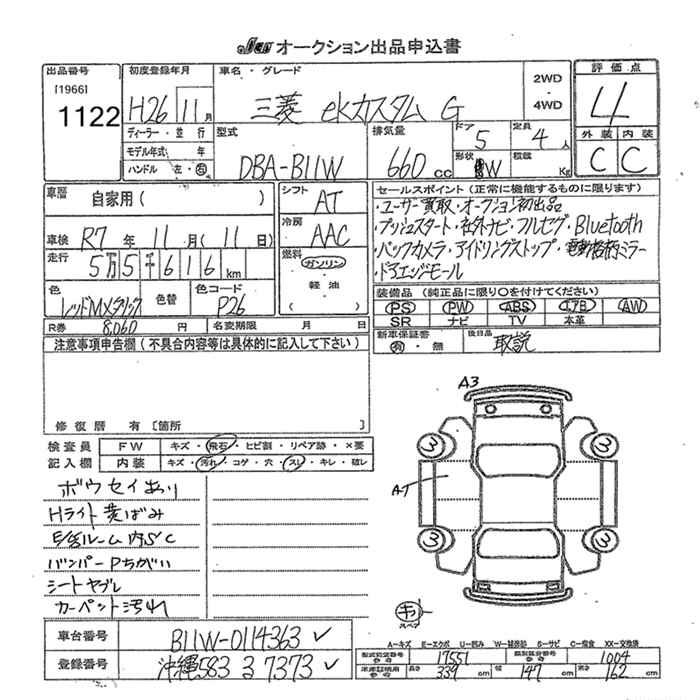 JCS オークション出品申込書
出品番号 初度登録年月 車名・グレード 2WD 評価点
[1966] 1122 H26 11月 三菱 ekカスタム G 4WD 4
ディーラー・並行 型式 排気量 ドア 5 定員 4人 外装 内装
モデル年式 年 DBA-B11W 660cc 形状 W 積載 Kg C C
ハンドル 左・右
車歴 自家用( ) シフト AT セールスポイント(正常に機能するものに限ります)
冷房 AAC ・ユーザー買取・オークション初出品
車検 R7年11月(11日) ・プッシュスタート・社外ナビ・フルセグ・Bluetooth
走行 5万5千616km 燃料 ガソリン ・バックカメラ・アイドリングストップ・電動格納ミラー
軽油 ・ドアエッジモール
( ) 装備品(純正品に限り○を付けてください)
色 レッドMメタリック 色替 色コード P26 PS PW ABS エアB AW
SR ナビ TV 本革
R券 8,060円 名変期限 月 日 新車保証書 有・無 後日品 取説
注意事項申告欄(不具合内容等は具体的に記入して下さい)
修復歴 有[箇所 ]
検査員 FW キズ・飛石・ヒビ割・リペア跡・×要
記入欄 内装 キズ・汚れ・コゲ・穴・スレ・キレ・破レ
ボウセイあり
Hライト黄ばみ
E/gルーム内S/C
バンパーPちがい
シートヤブレ
カーペット汚れ
A3
3 3
AT
3 3
キ
スペア
車台番号 B11W-0114363 ✓
登録番号 沖縄583 る 7373 ✓
A−キズ E−エクボ U−凹み W−補修跡 S−サビ C−腐食 XX−交換済
型式指定番号 参考 17551 類別区分番号 参考 1004
参考 長さ 339cm 幅 147cm 高さ 162cm